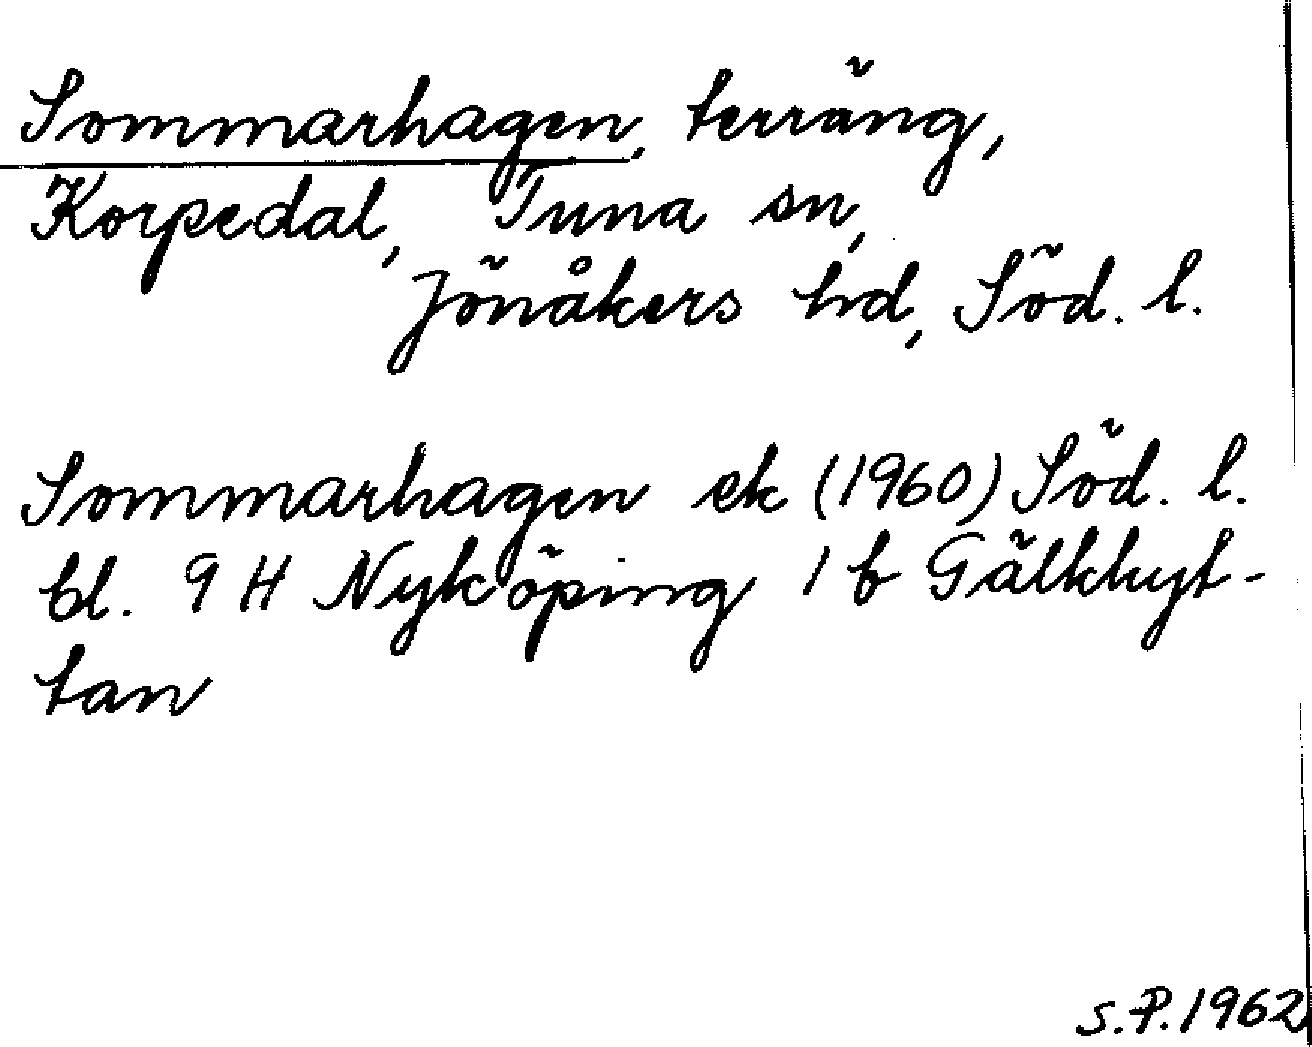 Sommarhagen, terräng,
Korpedal, Tuna sn,
Jönåkers hd, Söd. l.
Sommarhagen ek (1960) Söd. l.
bl. 9 H Nyköping 1 b Gälkhyt-
tan
S.P. 1962